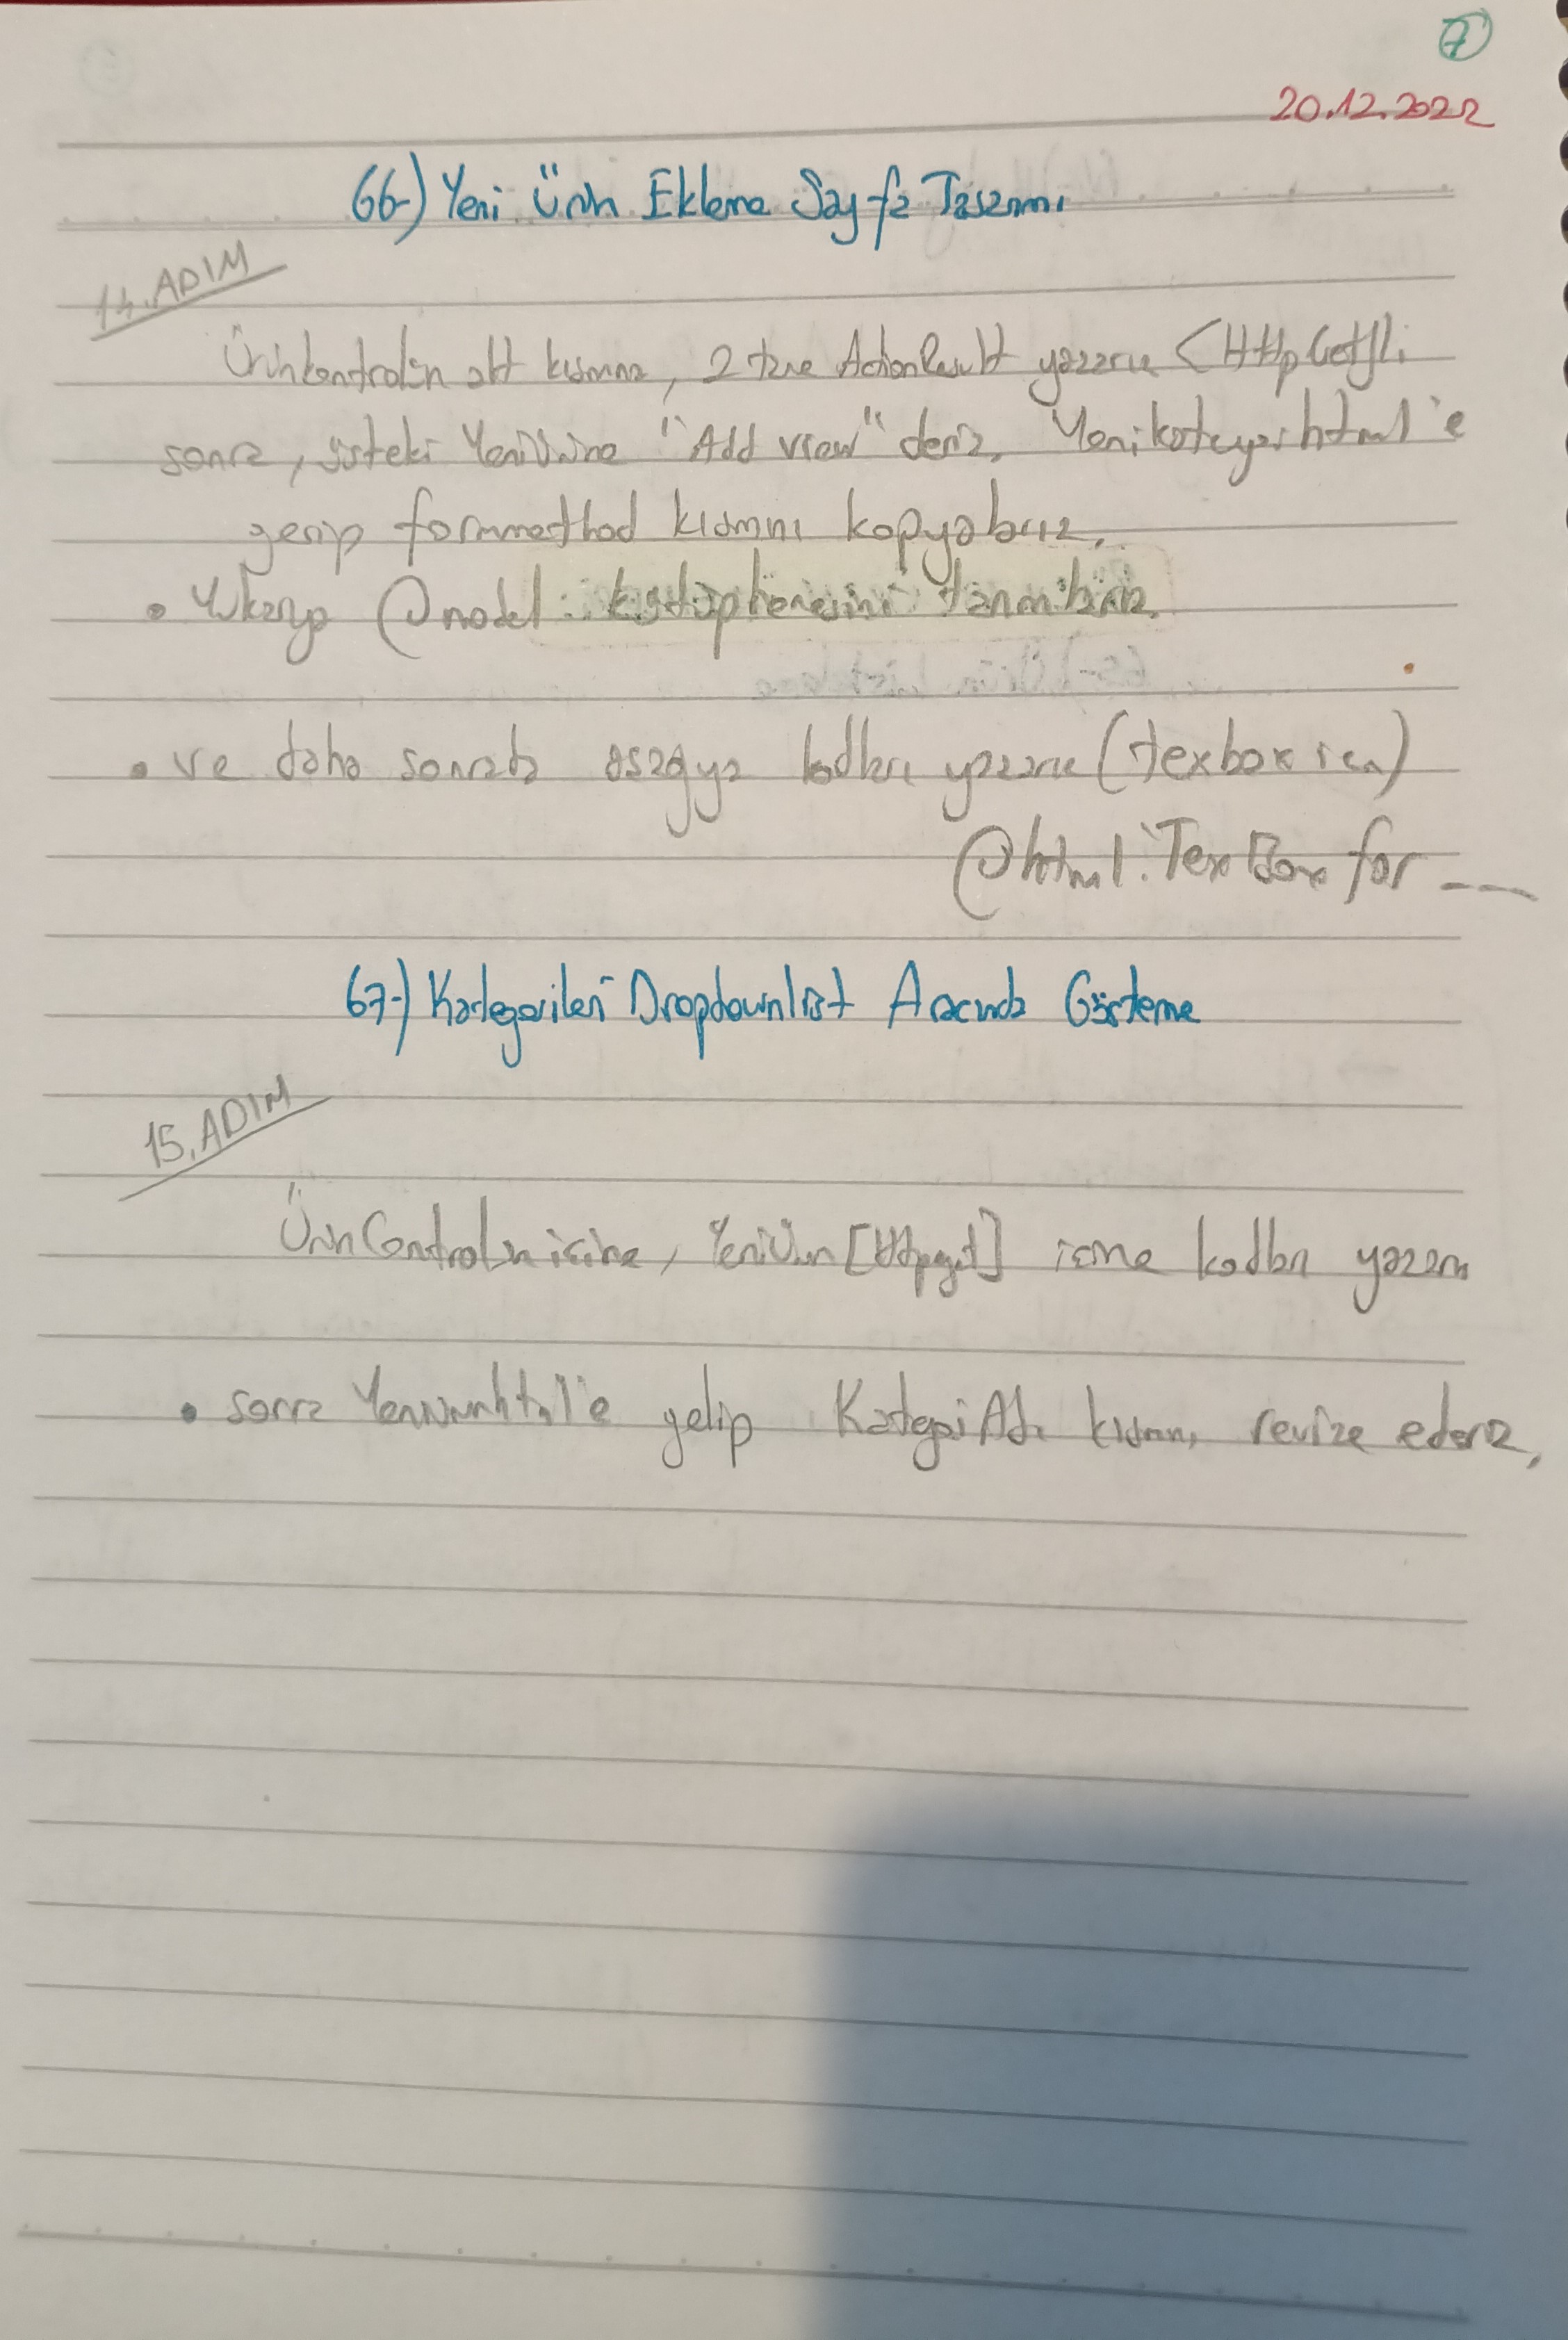 7
20.12.2022
66-) Yeni Ürün Ekleme Sayfa Tasarımı
14.ADIM
Ürünkontrolün alt kısmına, 2 tane ActionResult yazarız [HttpGet]li
sonra, üsteki YeniÜrüne "Add view" deriz. Yenikategorihtml'e
gerip formmethod kısmını kopyalarız.
• Yukarıya @model kütüphanesini tanımlarız.
• ve daha sonrada aşağıya kodları yazarız (texbox için)
@html.TexBox for ---
67-) Kategorileri Dropdownlist Aracında Gösterme
15.ADIM
ÜrünControlün içine, YeniÜrün [Httpget] içine kodları yazarız
• sonra Yeniürünhtml'e gelip KategoriAdı kısmını revize ederiz,